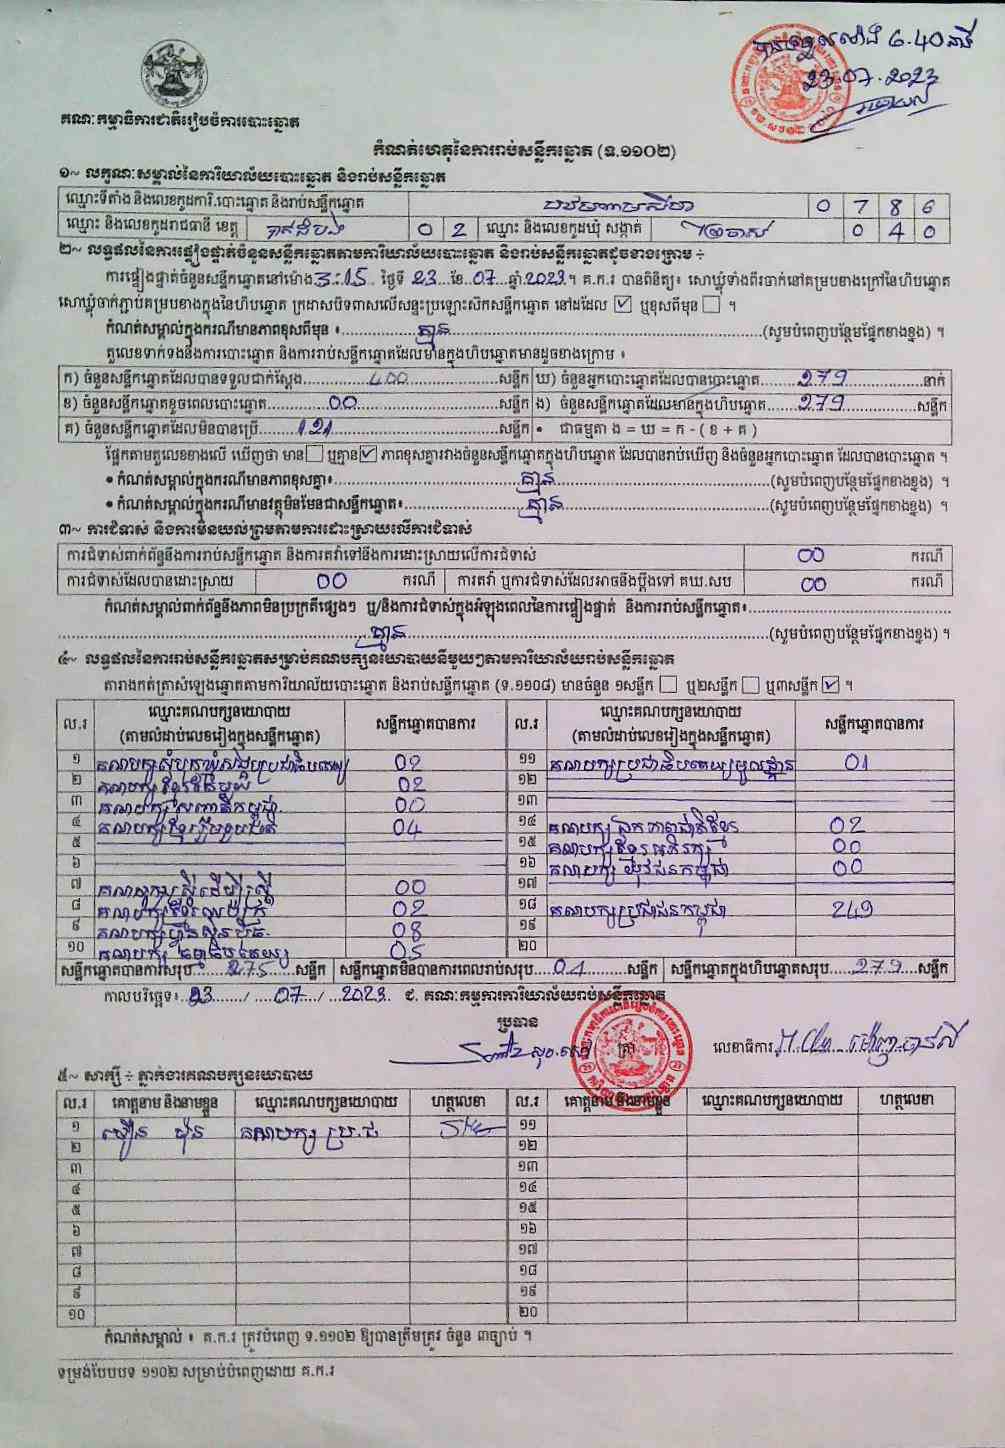 បានទទួលម៉ោង 6.40 នាទី
23.07.2023
គណៈកម្មាធិការជាតិរៀបចំការបោះឆ្នោត
កំណត់ហេតុនៃការរាប់សន្លឹកឆ្នោត (ទ.១១០២)
១~ លក្ខណៈសម្គាល់នៃការិយាល័យបោះឆ្នោត និងរាប់សន្លឹកឆ្នោត
ឈ្មោះទីតាំង និងលេខកូដការិ.បោះឆ្នោត និងរាប់សន្លឹកឆ្នោត 0 7 8 6
ឈ្មោះ និងលេខកូដរាជធានី ខេត្ត បាត់ដំបង 0 2 ឈ្មោះ និងលេខកូដឃុំ សង្កាត់ 0 4 0
២~ លទ្ធផលនៃការផ្ទៀងផ្ទាត់ចំនួនសន្លឹកឆ្នោតតាមការិយាល័យបោះឆ្នោត និងរាប់សន្លឹកឆ្នោតដូចខាងក្រោម ៖
ការផ្ទៀងផ្ទាត់ចំនួនសន្លឹកឆ្នោតនៅម៉ោង 3:15 ថ្ងៃទី 23 ខែ 07 ឆ្នាំ 2023 ។ គ.ក.រ បានពិនិត្យ៖ សោឃ្លុំទាំងពីរចាក់នៅគម្របខាងក្រៅនៃហិបឆ្នោត
សោឃ្លុំចាក់ភ្ជាប់គម្របខាងក្នុងនៃហិបឆ្នោត ក្រដាសបិទពាសលើសន្ទះប្រឡោះសិកសន្លឹកឆ្នោត នៅដដែល ☑ ឬខុសពីមុន ☐ ។
កំណត់សម្គាល់ក្នុងករណីមានភាពខុសពីមុន ៖ គ្មាន (សូមបំពេញបន្ថែមផ្នែកខាងខ្នង) ។
តួលេខទាក់ទងនឹងការបោះឆ្នោត និងការរាប់សន្លឹកឆ្នោតដែលមានក្នុងហិបឆ្នោតមានដូចខាងក្រោម ៖
ក) ចំនួនសន្លឹកឆ្នោតដែលបានទទួលជាក់ស្តែង 400 សន្លឹក ឃ) ចំនួនអ្នកបោះឆ្នោតដែលបានបោះឆ្នោត 279 នាក់
ខ) ចំនួនសន្លឹកឆ្នោតខូចពេលបោះឆ្នោត 00 សន្លឹក ង) ចំនួនសន្លឹកឆ្នោតដែលមានក្នុងហិបឆ្នោត 279 សន្លឹក
គ) ចំនួនសន្លឹកឆ្នោតដែលមិនបានប្រើ 121 សន្លឹក • ជាធម្មតា ង = ឃ = ក - ( ខ + គ )
ផ្អែកតាមតួលេខខាងលើ ឃើញថា មាន ☐ ឬគ្មាន ☑ ភាពខុសគ្នារវាងចំនួនសន្លឹកឆ្នោតក្នុងហិបឆ្នោត ដែលបានរាប់ឃើញ និងចំនួនអ្នកបោះឆ្នោត ដែលបានបោះឆ្នោត ។
• កំណត់សម្គាល់ក្នុងករណីមានភាពខុសគ្នា៖ គ្មាន (សូមបំពេញបន្ថែមផ្នែកខាងខ្នង) ។
• កំណត់សម្គាល់ក្នុងករណីមានវត្ថុមិនមែនជាសន្លឹកឆ្នោត៖ គ្មាន (សូមបំពេញបន្ថែមផ្នែកខាងខ្នង) ។
៣~ ការជំទាស់ និងការមិនយល់ព្រមតាមការដោះស្រាយលើការជំទាស់
ការជំទាស់ពាក់ព័ន្ធនឹងការរាប់សន្លឹកឆ្នោត និងការតវ៉ាទៅនឹងការដោះស្រាយលើការជំទាស់ 00 ករណី
ការជំទាស់ដែលបានដោះស្រាយ 00 ករណី ការតវ៉ា ឬការជំទាស់ដែលអាចនឹងប្តឹងទៅ គឃ.សប 00 ករណី
កំណត់សម្គាល់ពាក់ព័ន្ធនឹងភាពមិនប្រក្រតីផ្សេងៗ ឬ/និងការជំទាស់ក្នុងអំឡុងពេលនៃការផ្ទៀងផ្ទាត់ និងការរាប់សន្លឹកឆ្នោត៖
គ្មាន (សូមបំពេញបន្ថែមផ្នែកខាងខ្នង) ។
៤~ លទ្ធផលនៃការរាប់សន្លឹកឆ្នោតសម្រាប់គណបក្សនយោបាយនីមួយៗតាមការិយាល័យរាប់សន្លឹកឆ្នោត
តារាងកត់ត្រាសំឡេងឆ្នោតតាមការិយាល័យបោះឆ្នោត និងរាប់សន្លឹកឆ្នោត (ទ.១១០៨) មានចំនួន ១សន្លឹក ☐ ឬ២សន្លឹក ☐ ឬ៣សន្លឹក ☑ ។
ល.រ ឈ្មោះគណបក្សនយោបាយ (តាមលំដាប់លេខរៀងក្នុងសន្លឹកឆ្នោត) សន្លឹកឆ្នោតបានការ ល.រ ឈ្មោះគណបក្សនយោបាយ (តាមលំដាប់លេខរៀងក្នុងសន្លឹកឆ្នោត) សន្លឹកឆ្នោតបានការ
១ គណបក្សសំបុកឃ្មុំសង្គមប្រជាធិបតេយ្យ 02 ១១ គណបក្សប្រជាធិបតេយ្យមូលដ្ឋាន 01
២ គណបក្ស 02 ១២
៣ គណបក្ស 00 ១៣
៤ គណបក្សខ្មែររួបរួមជាតិ 04 ១៤ គណបក្ស ឯកភាពជាតិខ្មែរ 02
៥ ១៥ គណបក្ស ខ្មែរអភិរក្ស 00
៦ ១៦ គណបក្ស យុវជនកម្ពុជា 00
៧ គណបក្សស្ត្រីដើម្បីស្ត្រី 00 ១៧
៨ គណបក្ស 02 ១៨ គណបក្សប្រជាជនកម្ពុជា 249
៩ គណបក្សហ្វ៊ុនស៊ិនប៉ិច 08 ១៩
១០ គណបក្ស ធម្មាធិបតេយ្យ 05 ២០
សន្លឹកឆ្នោតបានការសរុប 275 សន្លឹក សន្លឹកឆ្នោតមិនបានការពេលរាប់សរុប 04 សន្លឹក សន្លឹកឆ្នោតក្នុងហិបឆ្នោតសរុប 279 សន្លឹក
កាលបរិច្ឆេទ៖ 23 / 07 / 2023 ជ. គណៈកម្មការការិយាល័យរាប់សន្លឹកឆ្នោត
ប្រធាន
ត្រា
លេខាធិការ
៥~ សាក្សី ៖ ភ្នាក់ងារគណបក្សនយោបាយ
ល.រ គោត្តនាម និងនាមខ្លួន ឈ្មោះគណបក្សនយោបាយ ហត្ថលេខា ល.រ គោត្តនាម និងនាមខ្លួន ឈ្មោះគណបក្សនយោបាយ ហត្ថលេខា
១ គណបក្ស ប្រ.ជ ១១
២ ១២
៣ ១៣
៤ ១៤
៥ ១៥
៦ ១៦
៧ ១៧
៨ ១៨
៩ ១៩
១០ ២០
កំណត់សម្គាល់ ៖ គ.ក.រ ត្រូវបំពេញ ទ.១១០២ ឱ្យបានត្រឹមត្រូវ ចំនួន ៣ច្បាប់ ។
ទម្រង់បែបបទ ១១០២ សម្រាប់បំពេញដោយ គ.ក.រ